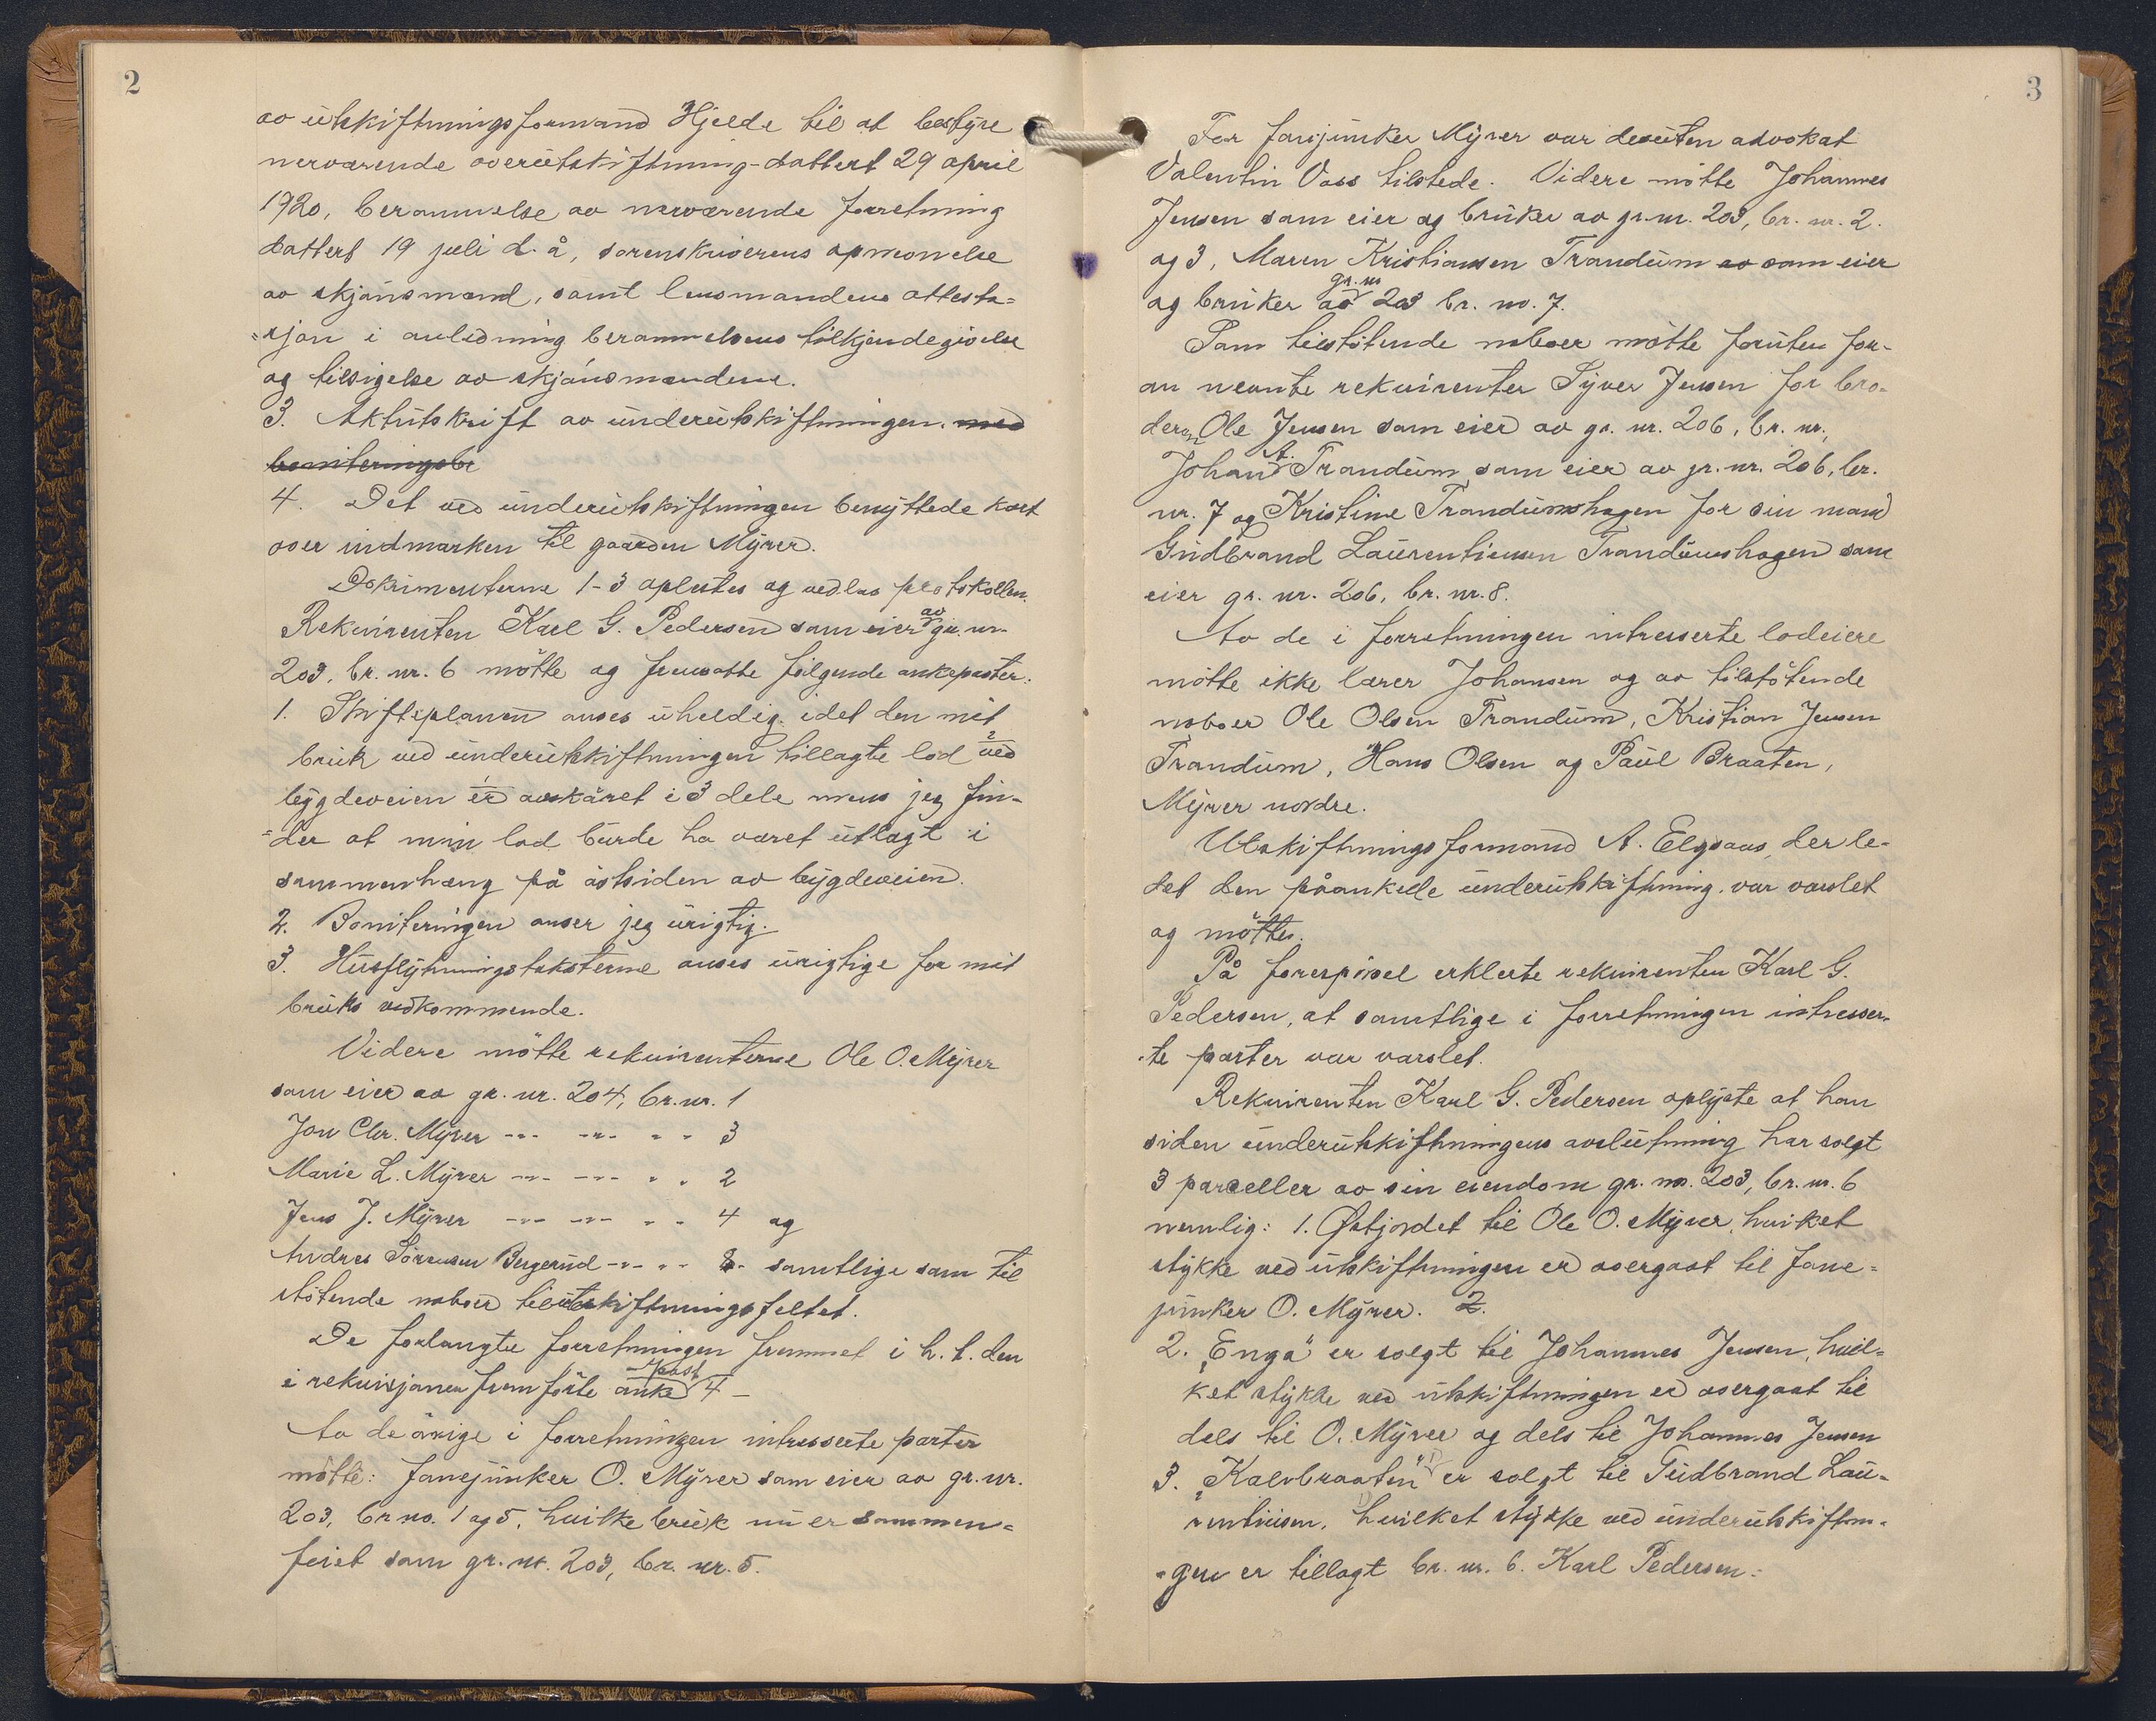 2
av utskiftningsformand Hjelde til at bestyre
nerværende overutskiftning - dattert 29 april
1920, berammelse av nerværende forretning
dattert 19 juli d. å, sorenskriverens opnevnelse
av skjønsmænd, samt lensmandens attesta=
=sjon i anledning berammelsens tilkjendegivelse
og tilsigelse av skjønsmændene.
3. Aktutskrift av underutskiftningen. med
boniteringsbe
4. Det ved underutskiftningen benyttede kart
over indmarken til gaarden Myrer.
Dokumenterne 1-3 oplestes og vedlas protokollen.
Rekvirenten Karl G. Pedersen som eier av gr. nr.
203, br. nr. 6 møtte og fremsatte følgende ankeposter:
1. Skifteplanen anses uheldig idet den mit
bruk ved underutskiftningen tillagte lod ved
bygdeveien er avskåret i 3 dele mens jeg fin-
=der at min lod burde ha været utlagt i
sammenhæng på østsiden av bygdeveien.
2. Boniteringen anser jeg urigtig.
3. Husflytningstaksterne anses urigtige for mit
bruks vedkommende.
Videre møtte rekvirenterne Ole O. Myrer
som eier av gr. nr. 204, br. nr. 1
Jon Chr. Myrer -"- -"- " " 3
Marie L. Myrer -"- -"- " " 2
Jens J. Myrer -"- -"- " " 4 og
Andres Sørensen Bergerud -"- " " 8 - samtlige som til
støtende naboer til utskiftningsfeltet.
De forlangte forretningen fremmet i h. t. den
i rekvisjonen fremførte anke post 4 -
Av de øvrige i forretningen intresserte parter
møtte: Fanejunker O. Myrer som eier av gr. nr.
203, br no. 1 og 5, hvilke bruk nu er sammen=
føiet som gr. nr. 203, br. nr. 5.
3
For fanejunker Myrer var desuten advokat
Valentin Voss tilstede. Videre møtte Johannes
Jensen som eier og bruker av gr. nr. 203, br. nr. 2.
og 3, Maren Kristiansen Trandum av som eier
og bruker av gr. nr 203 br. no. 7.
Som tilstøtende naboer møtte foruten for-
an nevnte rekvirenter Syver Jensen for bro-
deren Ole Jensen som eier av gr. nr. 206, br. nr.,
Johan A. Trandum som eier av gr. nr. 206, br.
nr. 7 og Kristine Trandumshagen for sin mand
Gudbrand Laurentiussen Trandumshagen som
eier gr. nr. 206, br. nr. 8.
Av de i forretningen intresserte lodeiere
møtte ikke Johansen og av tilstøtende
naboer Ole Olsen Trandum, Kristian Jensen
Trandum, Hans Olsen og Paul Braaten,
Myrer nordre.
Utskiftningsformand A. Elgsaas, der le-
det den påankede underutskiftning, var varslet
og møtte.
På forespørsel erklerte rekvirenten Karl G.
Pedersen, at samtlige i forretningen intresser-
-te parter var varslet.
Rekvirenten Karl G. Pedersen oplyste at han
siden underutskiftningens avslutning har solgt
3 parceller av sin eiendom gr. no. 203, br. nr. 6
nemlig: 1. Østjordet til Ole O. Myrer, hvilket
stykke ved utskiftningen er overgaat til fane=
junker O. Myrer. 2.
2. "Enga" er solgt til Johannes Jensen, hvil=
ket stykke ved utskiftningen er overgaat til
dels til O. Myrer og dels til Johannes Jensen
3. "Kalvbraaten" er solgt til Gudbrand Lau-
rentiusen, hvilket stykke ved underutskiftnin-
-gen er tillagt br. nr. 6. Karl Pedersen.